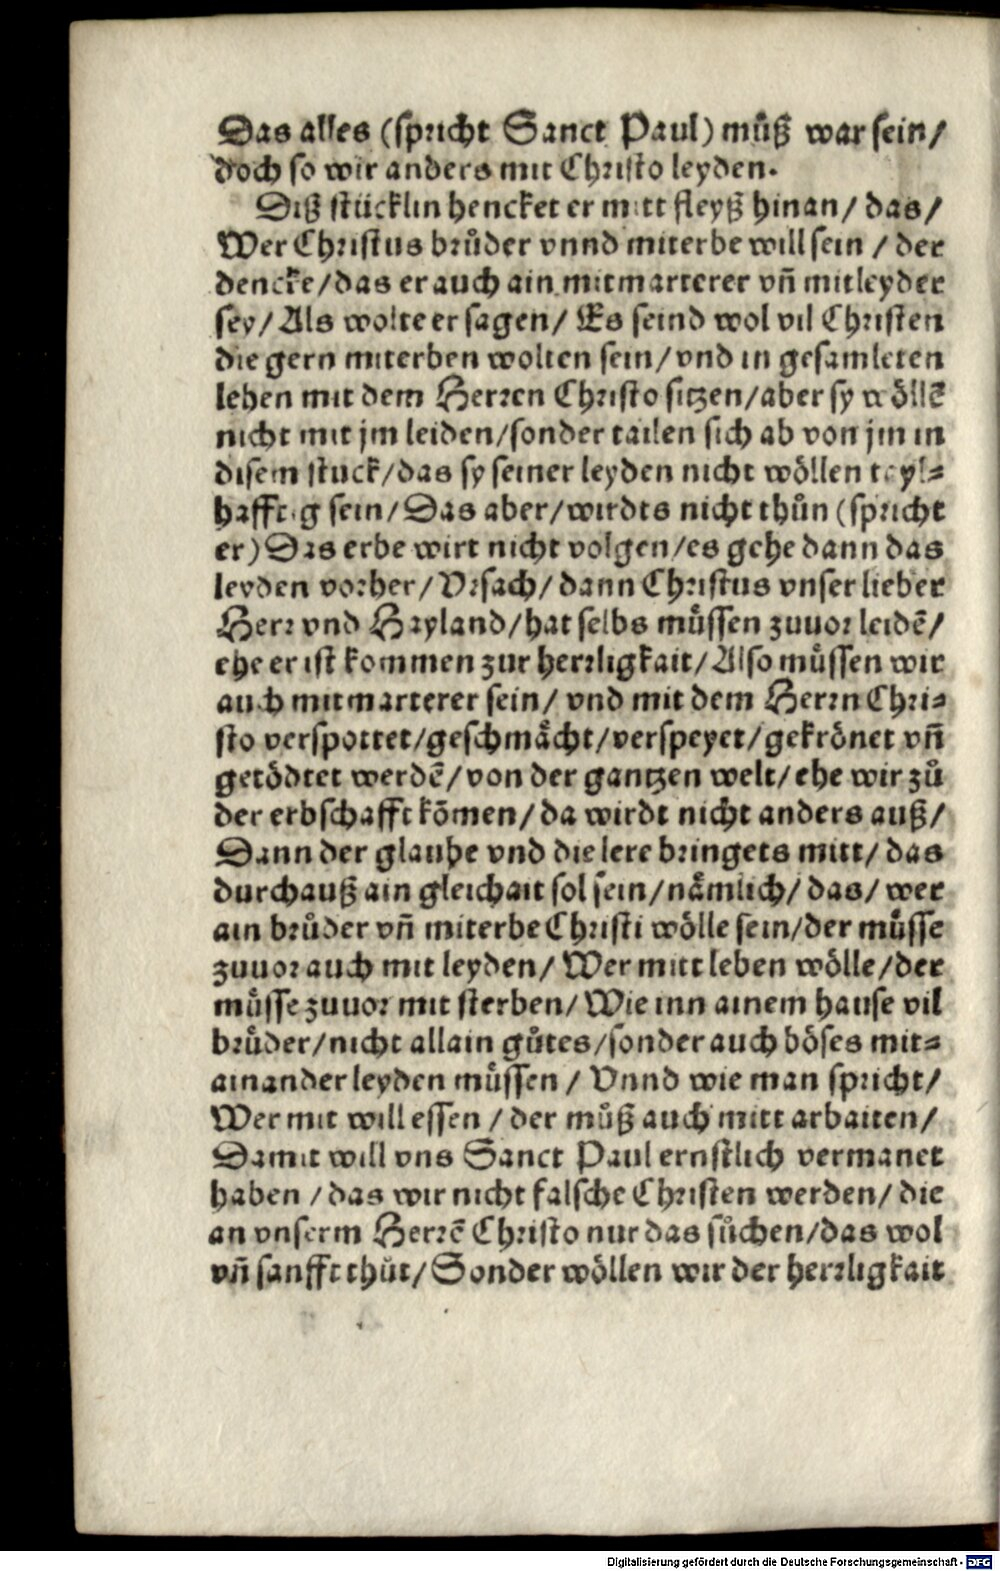 Das alles (spricht Sanct Paul) můß war sein/
doch so wir anders mit Christo leyden.
Diß stücklin hencket er mitt fleyß hinan/ das/
Wer Christus brůder vnnd miterbe will sein / der
dencke/das er auch ain mitmarterer vñ mitleyder
sey/ Als wolte er sagen/ Es seind wol vil Christen
die gern miterben wolten sein/vnd in gesamleten
lehen mit dem Herren Christo sitzen/aber sy wöllē
nicht mit jm leiden/sonder tailen sich ab von jm in
disem stuck/das sy seiner leyden nicht wöllen teyl-
hafftig sein/ Das aber/wirdts nicht thůn (spricht
er) Das erbe wirt nicht volgen/es gehe dann das
leyden vorher/ Vrsach/ dann Christus vnser lieber
Herr vnd Hayland/hat selbs müssen zuuor leidē/
ehe er ist kommen zur herrligkait/ Also müssen wir
auch mitmarterer sein/ vnd mit dem Herrn Chri-
sto verspottet/geschmächt/verspeyet/gekrönet vñ
getödtet werdē/von der gantzen welt/ehe wir zů
der erbschafft kōmen/ da wirdt nicht anders auß/
Dann der glaube vnd die lere bringets mitt/ das
durchauß ain gleichait sol sein/nämlich/ das/ wer
ain brůder vñ miterbe Christi wölle sein/der müsse
zuuor auch mit leyden/ Wer mitt leben wölle/der
müsse zuuor mit sterben/ Wie inn ainem hause vil
brüder/nicht allain gůtes/sonder auch böses mit-
ainander leyden müssen / Vnnd wie man spricht/
Wer mit will essen / der můß auch mitt arbaiten/
Damit will vns Sanct Paul ernstlich vermanet
haben / das wir nicht falsche Christen werden/ die
an vnserm Herrē Christo nur das sůchen/das wol
vñ sanfft thůt/ Sonder wöllen wir der herrligkait
Digitalisierung gefördert durch die Deutsche Forschungsgemeinschaft - DFG